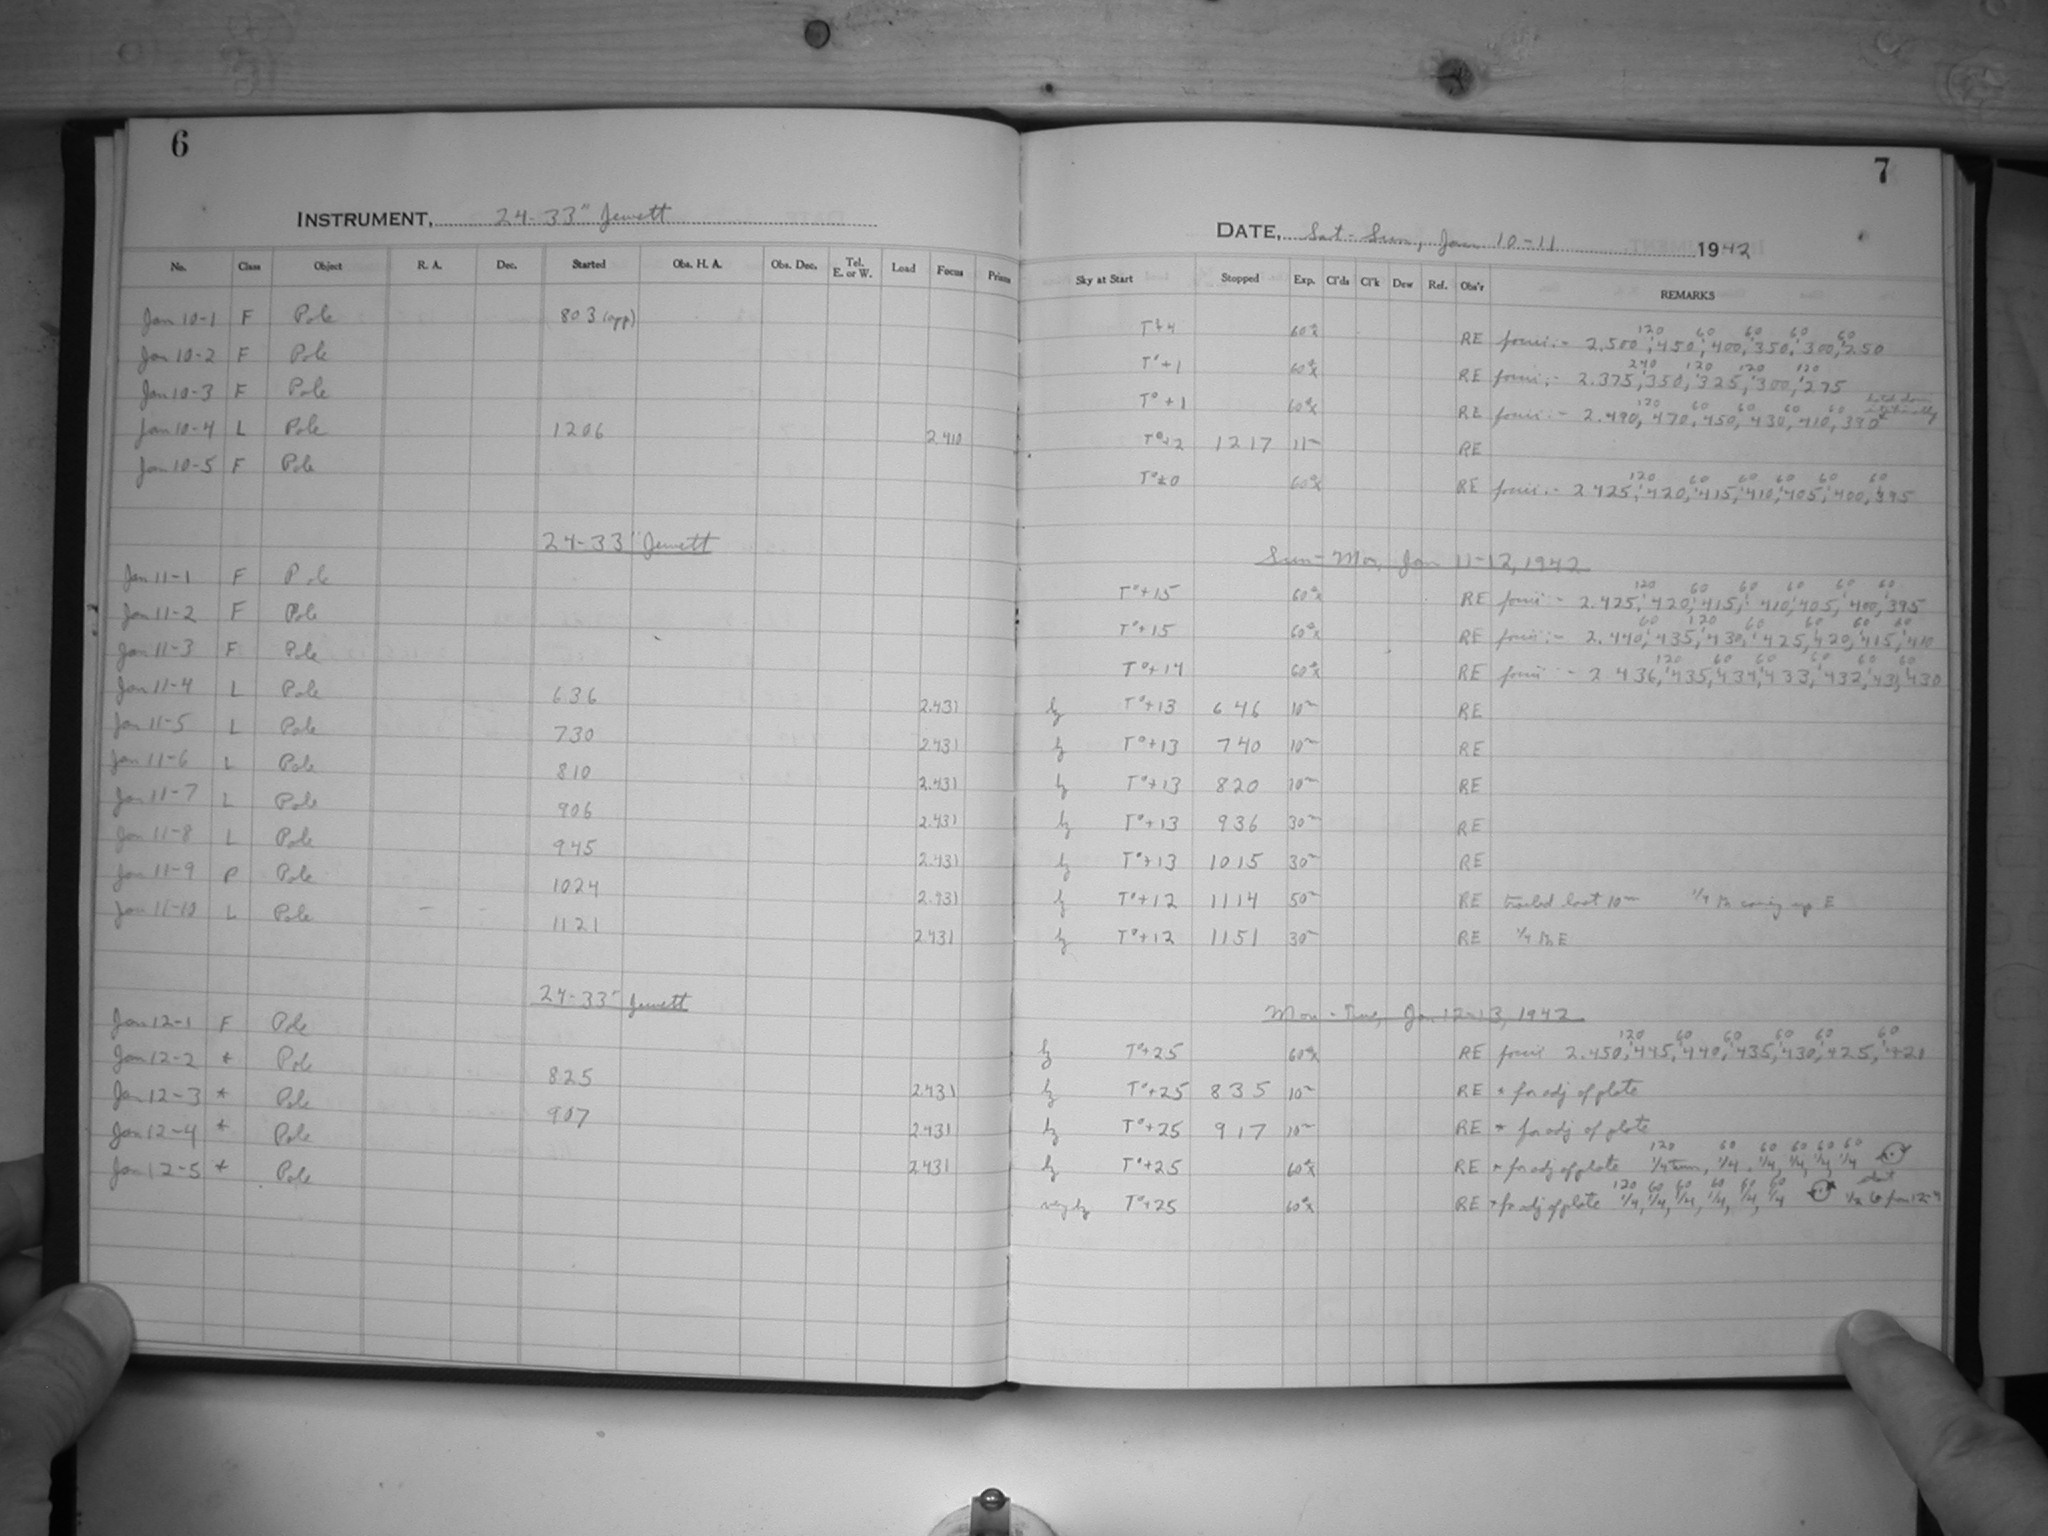 6
INSTRUMENT, 24-33" Jewett
No. Class Object R. A. Dec. Started Obs. H. A. Obs. Dec. Tel. E. or W. Load Focus Prism
Jan 10-1 F Pole 803 (app)
Jan 10-2 F Pole
Jan 10-3 F Pole
Jan 10-4 L Pole 1206 2.410
Jan 10-5 F Pole
24-33" Jewett
Jan 11-1 F Pole
Jan 11-2 F Pole
Jan 11-3 F Pole
Jan 11-4 L Pole 636 2.431
Jan 11-5 L Pole 730 2.431
Jan 11-6 L Pole 810 2.431
Jan 11-7 L Pole 906 2.431
Jan 11-8 L Pole 945 2.431
Jan 11-9 P Pole 1024 2.431
Jan 11-10 L Pole - - 1121 2.431
24-33" Jewett
Jan 12-1 F Pole
Jan 12-2 * Pole 825 2.431
Jan 12-3 * Pole 907 2.431
Jan 12-4 * Pole 2.431
Jan 12-5 * Pole
7
DATE, Sat-Sun, Jan 10-11 1942
Sky at Start Stopped Exp. Cl'ds Cl'k Dew Ref. Obs'r REMARKS
120 60 60 60 60
T°+4 60s x RE focus:- 2.500, 450, 400, 350, 300, 250
240 120 120 120
T°+1 60s x RE focus:- 2.375, 350, 325, 300, 275
120 60 60 60 60
T°+1 60s x RE focus:- 2.490, 470, 450, 430, 410, 390
T°+2 1217 11m RE
120 60 60 60 60 60
T°±0 60s x RE focus:- 2.425, 420, 415, 410, 405, 400, 395
Sun-Mon, Jan 11-12, 1942
120 60 60 60 60 60
T°+15 60s x RE focus:- 2.425, 420, 415, 410, 405, 400, 395
60 120 60 60 60 60
T°+15 60s x RE focus:- 2.440, 435, 430, 425, 420, 415, 410
120 60 60 60 60 60
T°+14 60s x RE focus:- 2.436, 435, 434, 433, 432, 431, 430
hz T°+13 646 10m RE
hz T°+13 740 10m RE
hz T°+13 820 10m RE
hz T°+13 936 30m RE
hz T°+13 1015 30m RE
hz T°+12 1114 50m RE trailed last 10m 1/4 coming up E
hz T°+12 1151 30m RE 1/4 E
Mon-Tue, Jan 12-13, 1942
120 60 60 60 60 60
hz T°+25 60s x RE focus 2.450, 445, 440, 435, 430, 425, 420
hz T°+25 835 10m RE * for adj of plate
hz T°+25 917 10m RE * for adj of plate
120 60 60 60 60 60
hz T°+25 60s x RE * for adj of plate 1/4 turn, 1/4, 1/4, 1/4, 1/4, 1/4
120 60 60 60 60 60
very hz T°+25 60s x RE * for adj of plate 1/4, 1/4, 1/4, 1/4, 1/4, 1/4 from 12-4